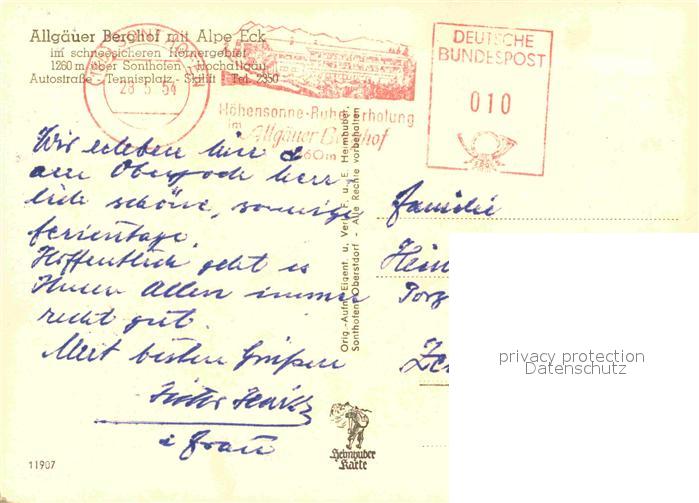 Allgäuer Berghof mit Alpe Eck
im schneesicheren Hörnergebiet
1260 m über Sonthofen - Hochallgäu
Autostraße - Tennisplatz - Skilift - Tel. 2350
28 5 54
Höhensonne-Ruhe-Erholung
im Allgäuer Berghof
DEUTSCHE
BUNDESPOST
010
Wir erleben hier
am herr-
lich schöne, sonnige
Ferientage.
Hoffentlich geht es
Ihnen Allen immer
recht gut.
Mit besten Grüßen
Frau
Orig.-Aufn. Eigent. u. Verl. F. u. E. Heimhuber,
Sonthofen-Oberstdorf - Alle Rechte vorbehalten
Familie
Hein
Porz
privacy protection
Datenschutz
Heimhuber
Karte
11907